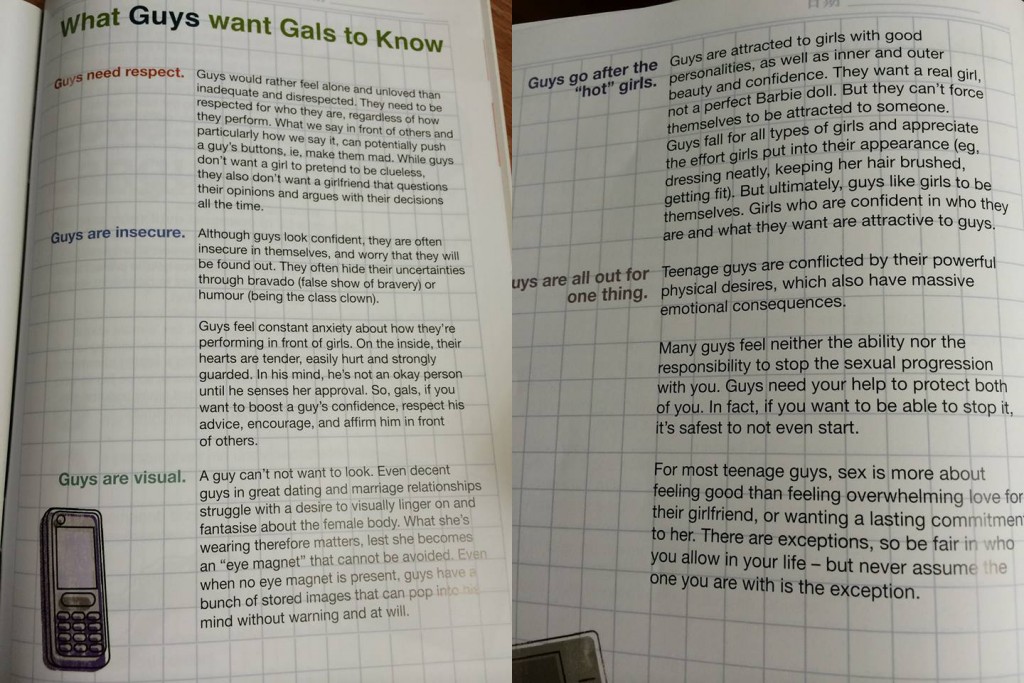 What Guys want Gals to Know
Guys need respect.
Guys would rather feel alone and unloved than
inadequate and disrespected. They need to be
respected for who they are, regardless of how
they perform. What we say in front of others and
particularly how we say it, can potentially push
a guy's buttons, ie, make them mad. While guys
don't want a girl to pretend to be clueless,
they also don't want a girlfriend that questions
their opinions and argues with their decisions
all the time.
Guys are insecure.
Although guys look confident, they are often
insecure in themselves, and worry that they will
be found out. They often hide their uncertainties
through bravado (false show of bravery) or
humour (being the class clown).
Guys feel constant anxiety about how they're
performing in front of girls. On the inside, their
hearts are tender, easily hurt and strongly
guarded. In his mind, he's not an okay person
until he senses her approval. So, gals, if you
want to boost a guy's confidence, respect his
advice, encourage, and affirm him in front
of others.
Guys are visual.
A guy can't not want to look. Even decent
guys in great dating and marriage relationships
struggle with a desire to visually linger on and
fantasise about the female body. What she's
wearing therefore matters, lest she becomes
an "eye magnet" that cannot be avoided. Even
when no eye magnet is present, guys have a
bunch of stored images that can pop into his
mind without warning and at will.
Guys go after the
"hot" girls.
Guys are attracted to girls with good
personalities, as well as inner and outer
beauty and confidence. They want a real girl,
not a perfect Barbie doll. But they can't force
themselves to be attracted to someone.
Guys fall for all types of girls and appreciate
the effort girls put into their appearance (eg,
dressing neatly, keeping her hair brushed,
getting fit). But ultimately, guys like girls to be
themselves. Girls who are confident in who they
are and what they want are attractive to guys.
uys are all out for
one thing.
Teenage guys are conflicted by their powerful
physical desires, which also have massive
emotional consequences.
Many guys feel neither the ability nor the
responsibility to stop the sexual progression
with you. Guys need your help to protect both
of you. In fact, if you want to be able to stop it,
it's safest to not even start.
For most teenage guys, sex is more about
feeling good than feeling overwhelming love for
their girlfriend, or wanting a lasting commitmen
to her. There are exceptions, so be fair in who
you allow in your life – but never assume the
one you are with is the exception.